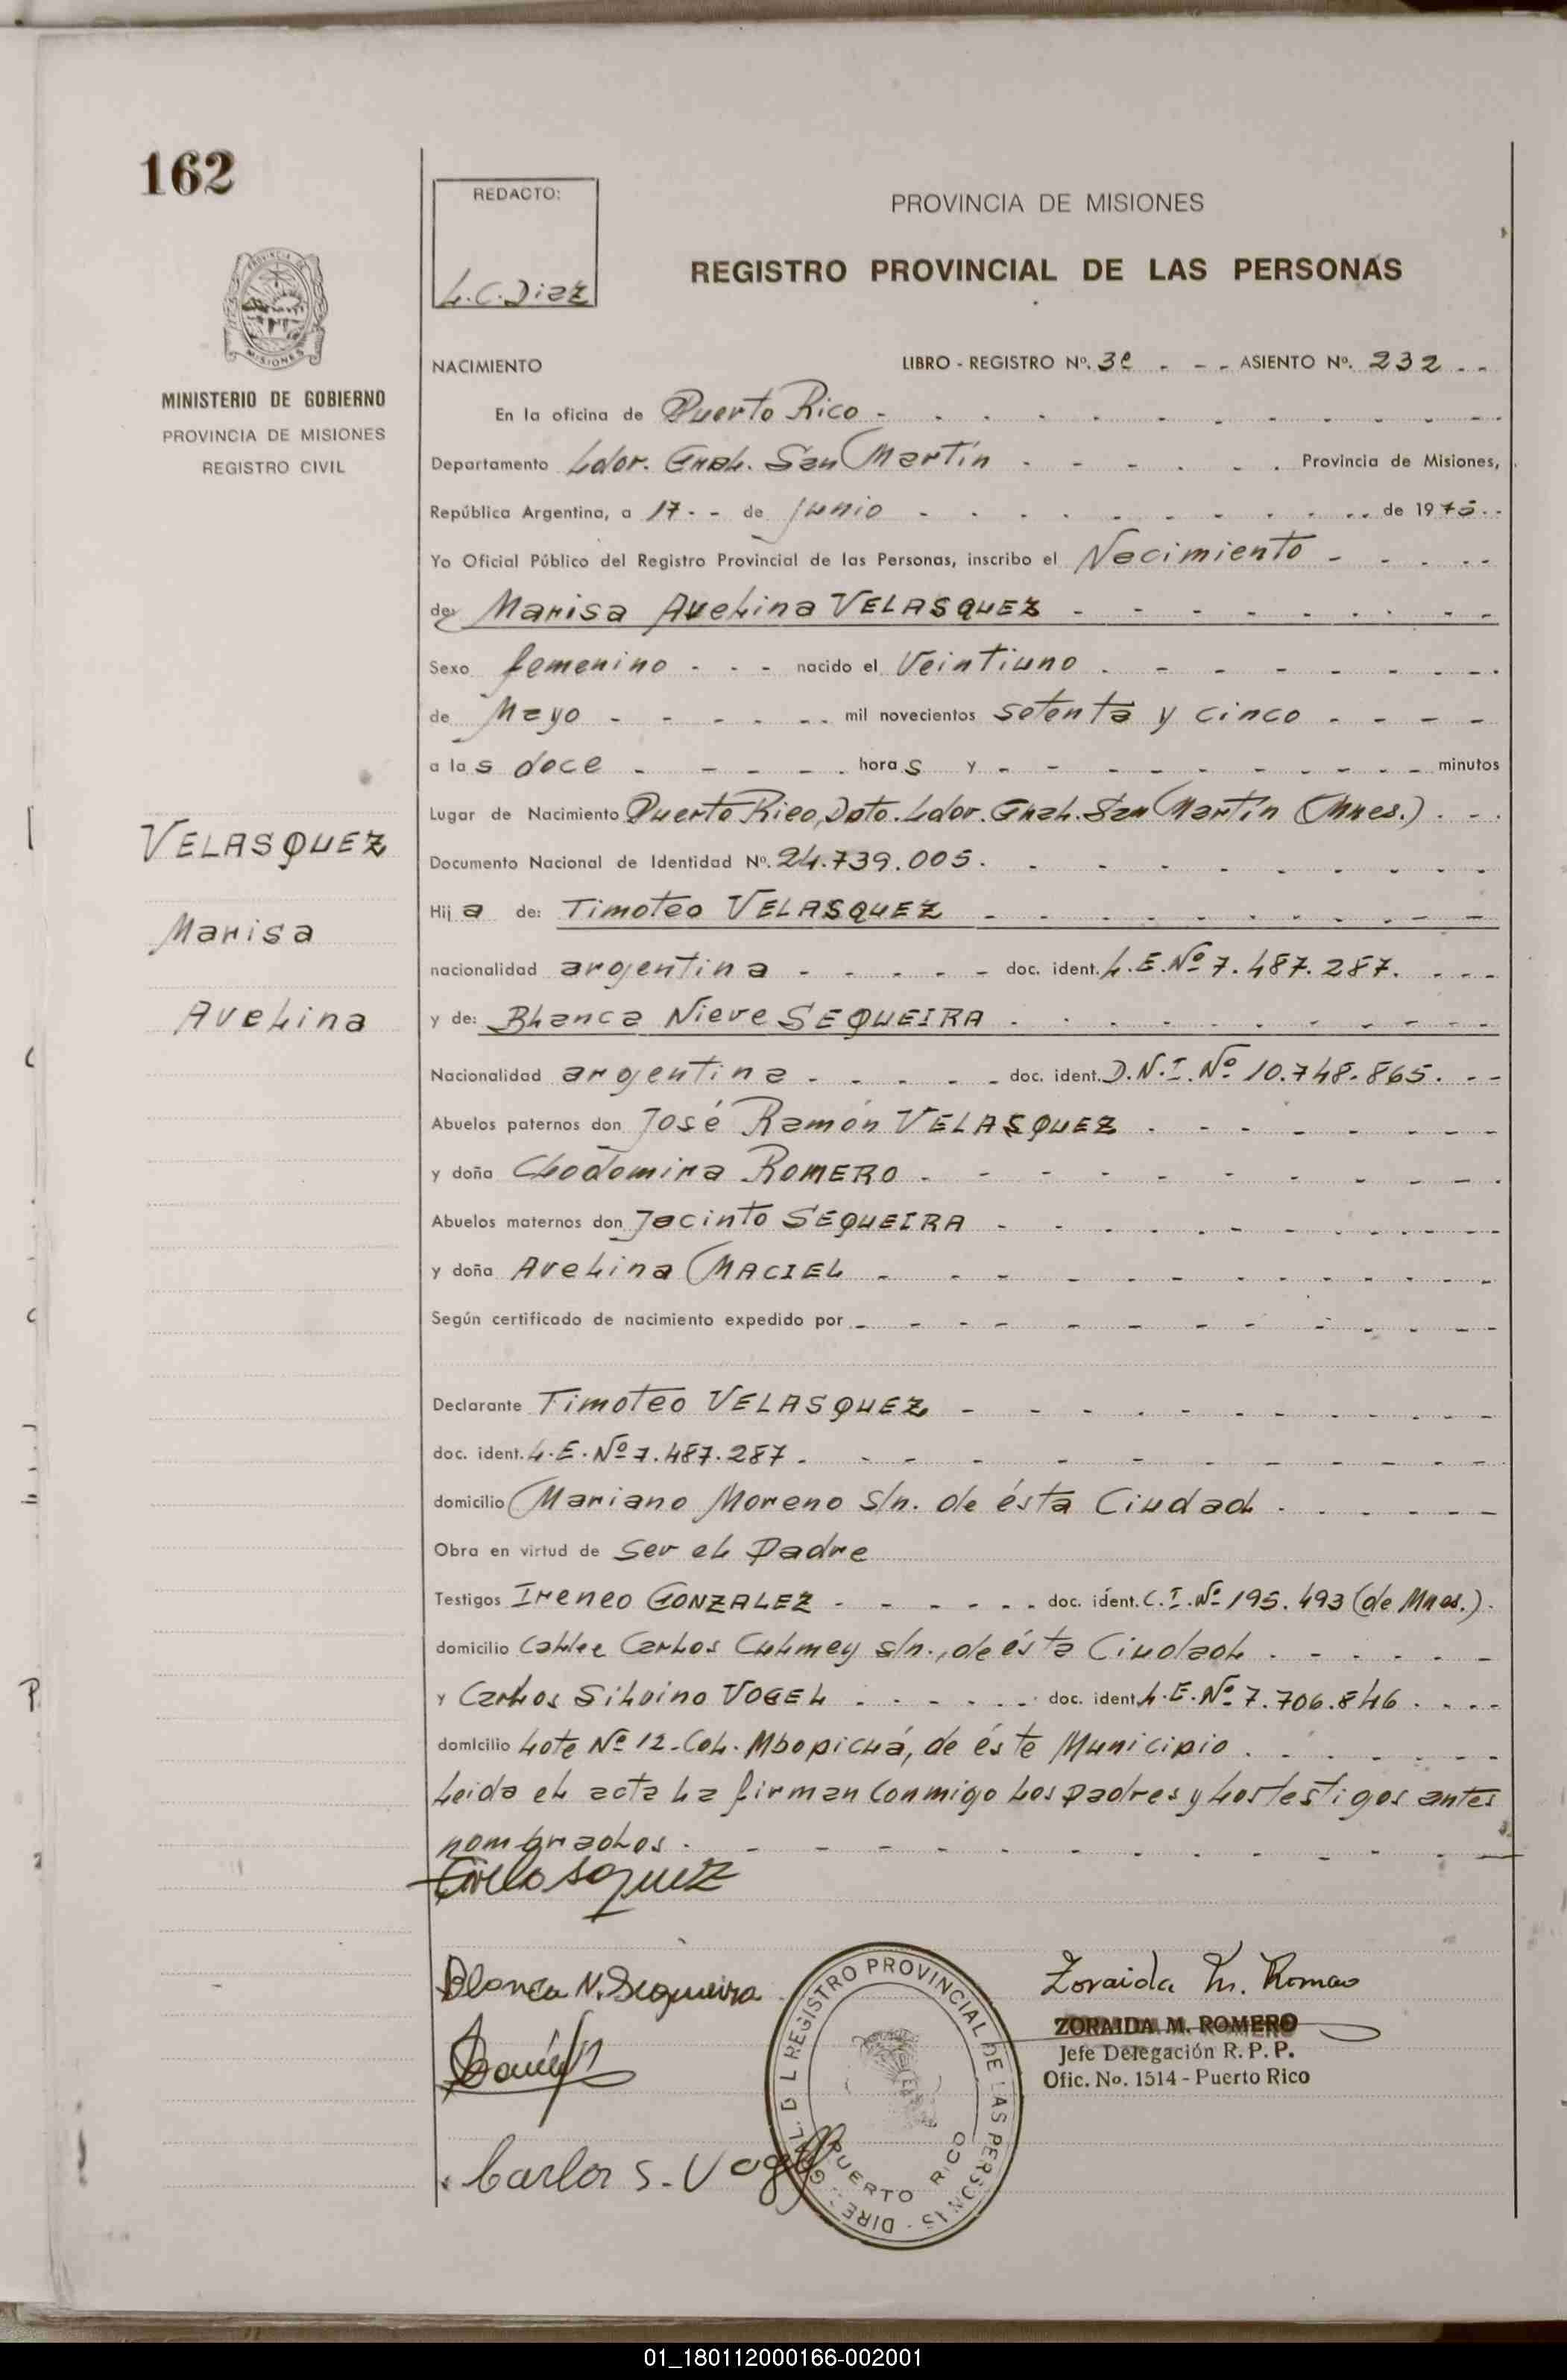 162
REDACTO:
L.C.Diaz
PROVINCIA DE MISIONES
REGISTRO PROVINCIAL DE LAS PERSONAS
MISIONES
MINISTERIO DE GOBIERNO
PROVINCIA DE MISIONES
REGISTRO CIVIL
NACIMIENTO LIBRO - REGISTRO Nº. 3º - - - ASIENTO Nº. 232 - -
En la oficina de Puerto Rico -
Departamento Ldor. Gral. San Martín - Provincia de Misiones,
República Argentina, a 17 - - de junio - de 1975 - -
Yo Oficial Público del Registro Provincial de las Personas, inscribo el Nacimiento -
de Marisa Avelina VELASQUEZ -
Sexo femenino - - - nacido el Veintiuno -
de Mayo - mil novecientos setenta y cinco -
a las doce - horas y - minutos
Lugar de Nacimiento Puerto Rico, Dpto. Ldor. Gral. San Martín (Mnes.) -
Documento Nacional de Identidad Nº. 24.739.005.
VELASQUEZ
Marisa
Avelina
Hija de: Timoteo VELASQUEZ -
nacionalidad argentina - doc. ident. L.E.Nº 7.487.287. -
y de: Blanca Nieve SEQUEIRA -
Nacionalidad argentina - doc. ident. D.N.I. Nº 10.748.865. - -
Abuelos paternos don José Ramón VELASQUEZ -
y doña Clodomira ROMERO -
Abuelos maternos don Jacinto SEQUEIRA -
y doña Avelina MACIEL -
Según certificado de nacimiento expedido por -
Declarante Timoteo VELASQUEZ -
doc. ident. L.E. Nº 7.487.287 -
domicilio Mariano Moreno s/n. de ésta Ciudad -
Obra en virtud de ser el Padre
Testigos Ireneo GONZALEZ - doc. ident. C.I. Nº 195.493 (de Mnes.) -
domicilio Calle Carlos Culmey s/n., de ésta Ciudad -
y Carlos Silvino VOGEL - doc. ident. L.E. Nº 7.706.846 -
domicilio Lote Nº 12-Col. Mbopicuá, de éste Municipio -
Leida el acta la firman conmigo los padres y los testigos antes
nombrados. -
Blanca N. Sequeira
Zoraida M. Romero
ZORAIDA M. ROMERO
Jefe Delegación R. P. P.
Ofic. No. 1514 - Puerto Rico
REGISTRO PROVINCIAL DE LAS PERSONAS
PUERTO RICO
Carlos S. Vogel
01_180112000166-002001